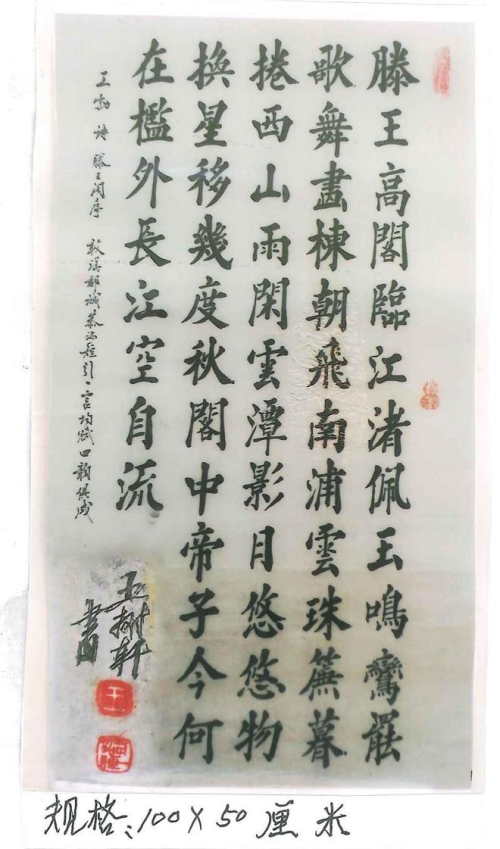 滕王高閣臨江渚佩玉鳴鸞罷
歌舞畫棟朝飛南浦雲珠簾暮
捲西山雨閑雲潭影日悠悠物
換星移幾度秋閣中帝子今何
在檻外長江空自流
王勃詩滕王阁序 敢竭鄙誠恭疏短引一言均賦四韻俱成
王樹軒
書
规格:100X50厘米